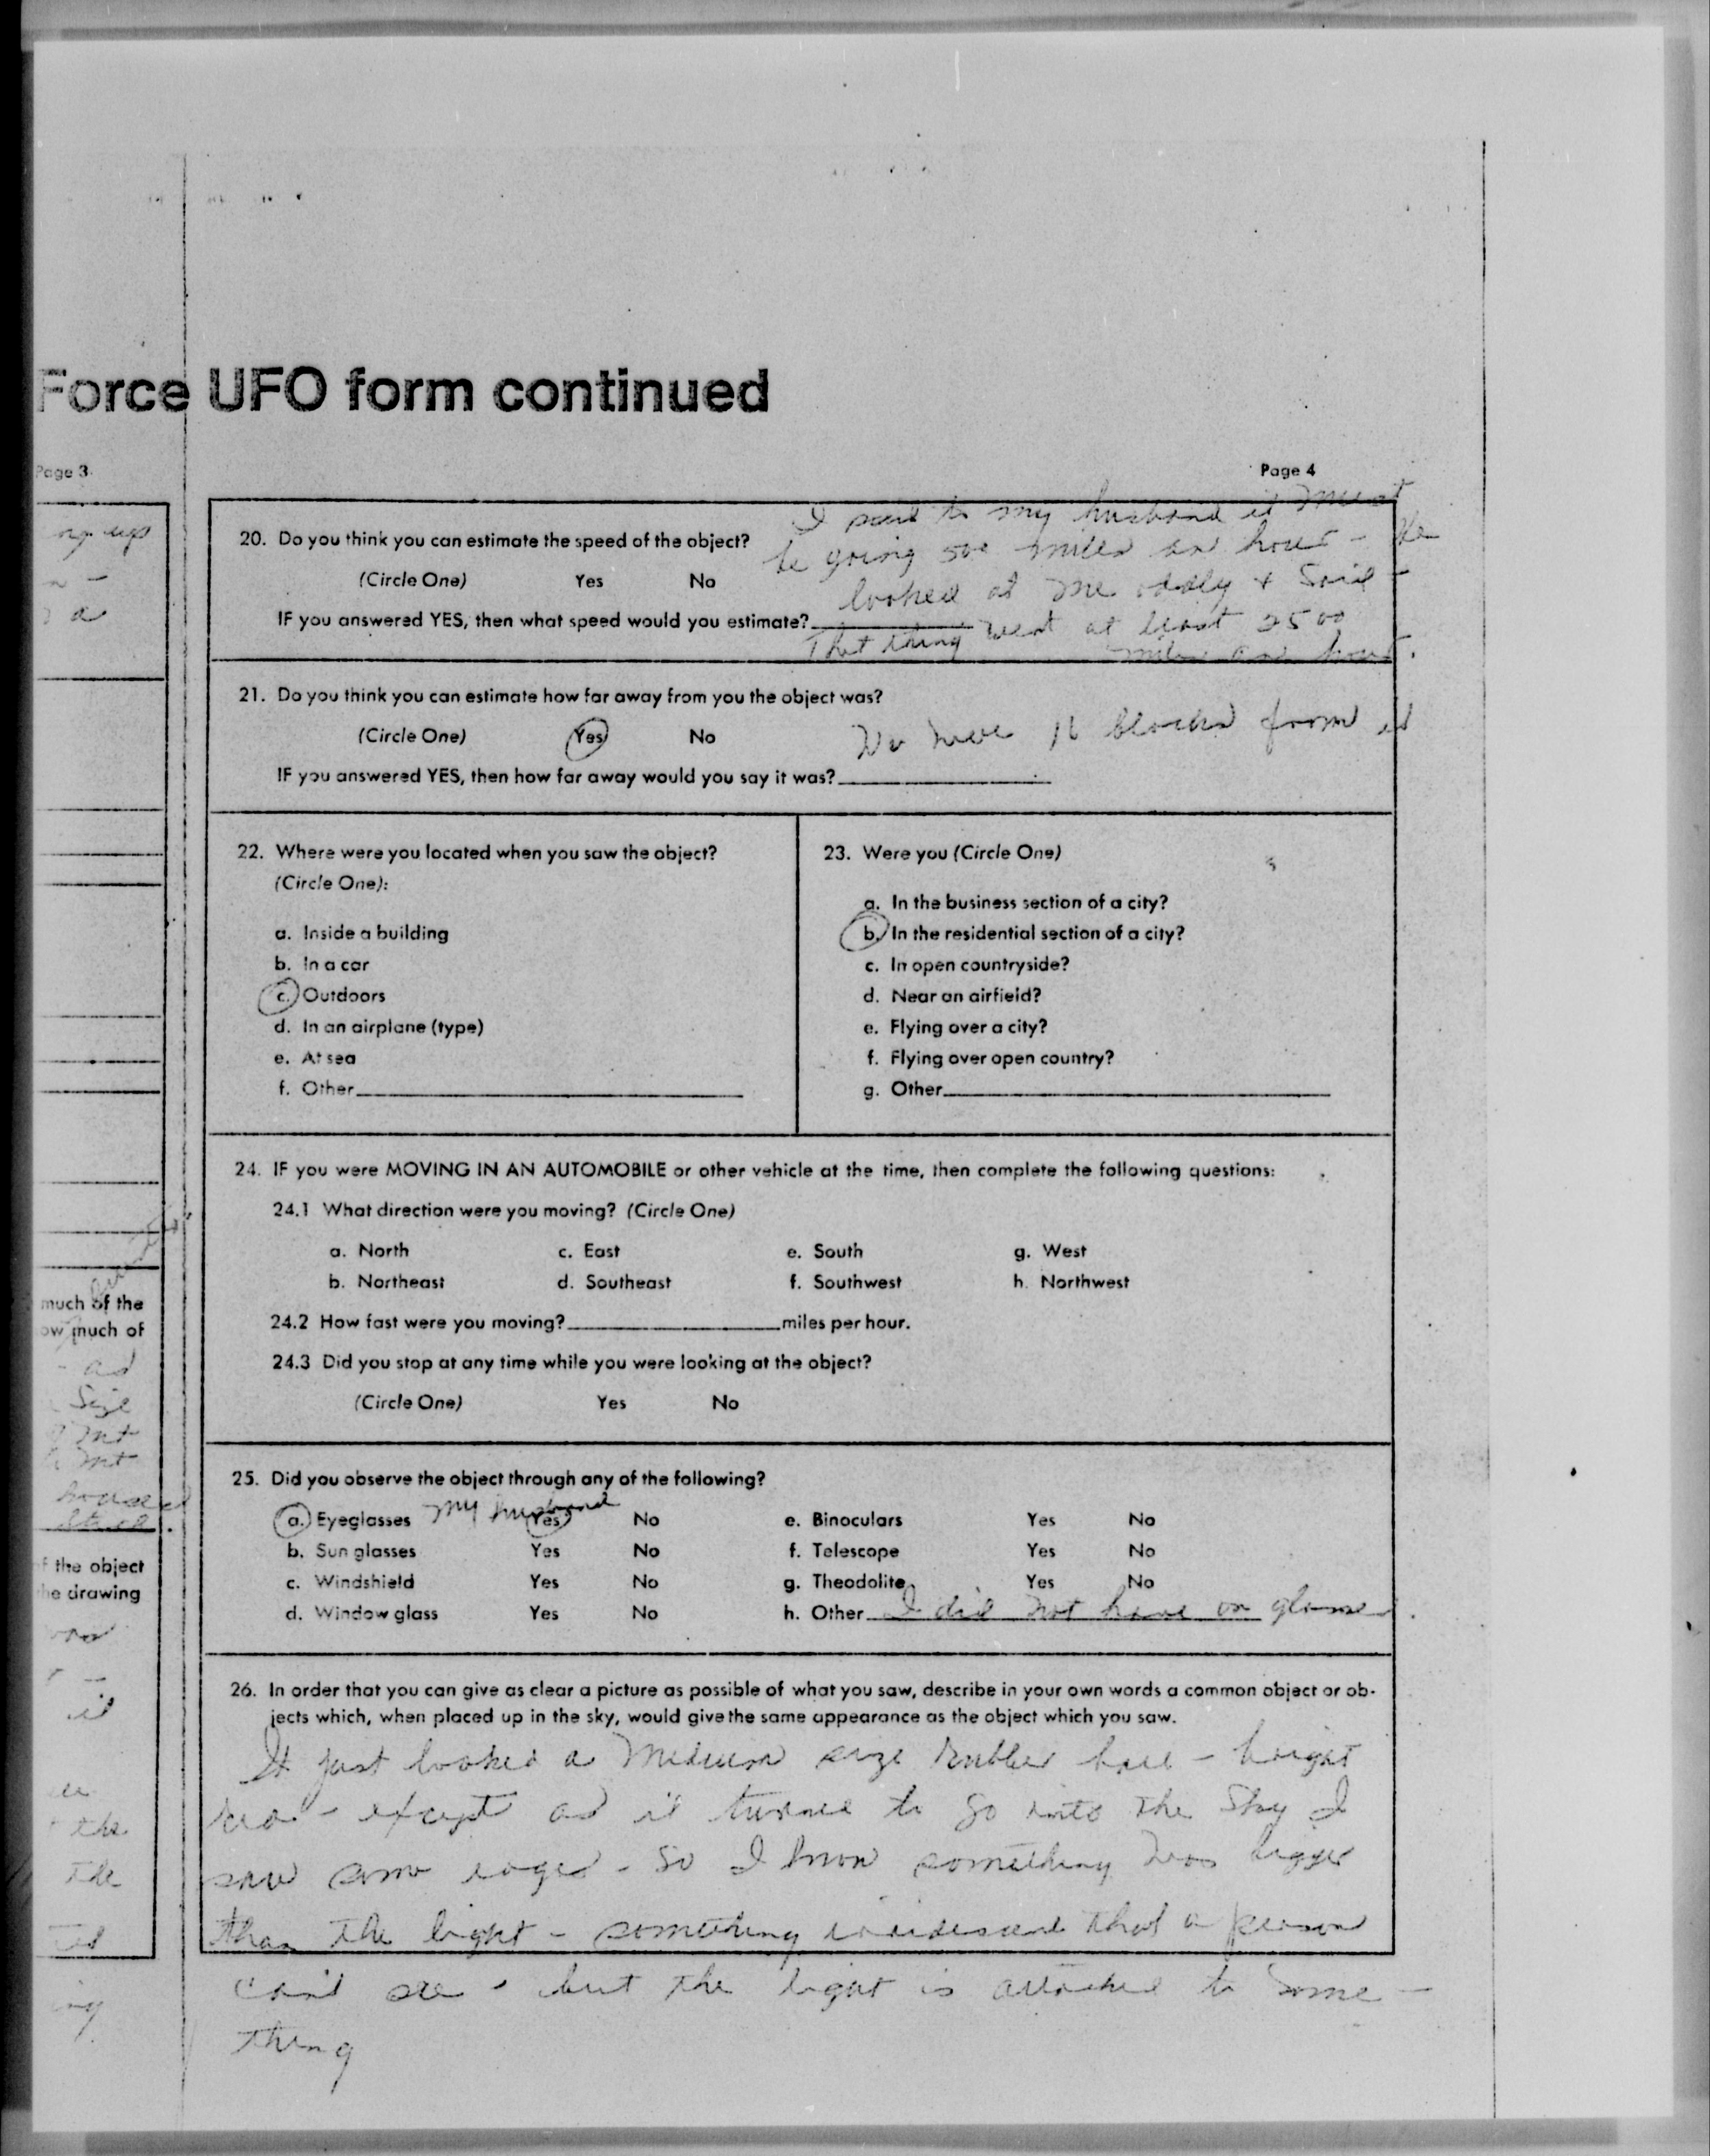 Force UFO form continued
Page 3
Page 4
ng up
a
much of the
ow much of
ad
Size
mt
mt
house
f the object
he drawing
it
the
the
ing
20. Do you think you can estimate the speed of the object?
(Circle One) Yes No
IF you answered YES, then what speed would you estimate?
I said to my husband it must
be going 500 miles an hour - He
looked at me oddly + said -
That thing went at least 2500
miles an hour.
21. Do you think you can estimate how far away from you the object was?
(Circle One) Yes No
IF you answered YES, then how far away would you say it was?
blocks from it
22. Where were you located when you saw the object?
(Circle One):
a. Inside a building
b. In a car
c. Outdoors
d. In an airplane (type)
e. At sea
f. Other
23. Were you (Circle One)
a. In the business section of a city?
b. In the residential section of a city?
c. In open countryside?
d. Near an airfield?
e. Flying over a city?
f. Flying over open country?
g. Other
24. IF you were MOVING IN AN AUTOMOBILE or other vehicle at the time, then complete the following questions:
24.1 What direction were you moving? (Circle One)
a. North c. East e. South g. West
b. Northeast d. Southeast f. Southwest h. Northwest
24.2 How fast were you moving? miles per hour.
24.3 Did you stop at any time while you were looking at the object?
(Circle One) Yes No
25. Did you observe the object through any of the following?
a. Eyeglasses my husband Yes No e. Binoculars Yes No
b. Sun glasses Yes No f. Telescope Yes No
c. Windshield Yes No g. Theodolite Yes No
d. Window glass Yes No h. Other I did not have on glasses.
26. In order that you can give as clear a picture as possible of what you saw, describe in your own words a common object or ob-
jects which, when placed up in the sky, would give the same appearance as the object which you saw.
It just looked a medium size rubber ball - bright
red - except as it turned to go into the sky I
saw some edges - so I know something was bigger
than the light - something iridescent that a person
can't see - but the light is attached to some -
thing